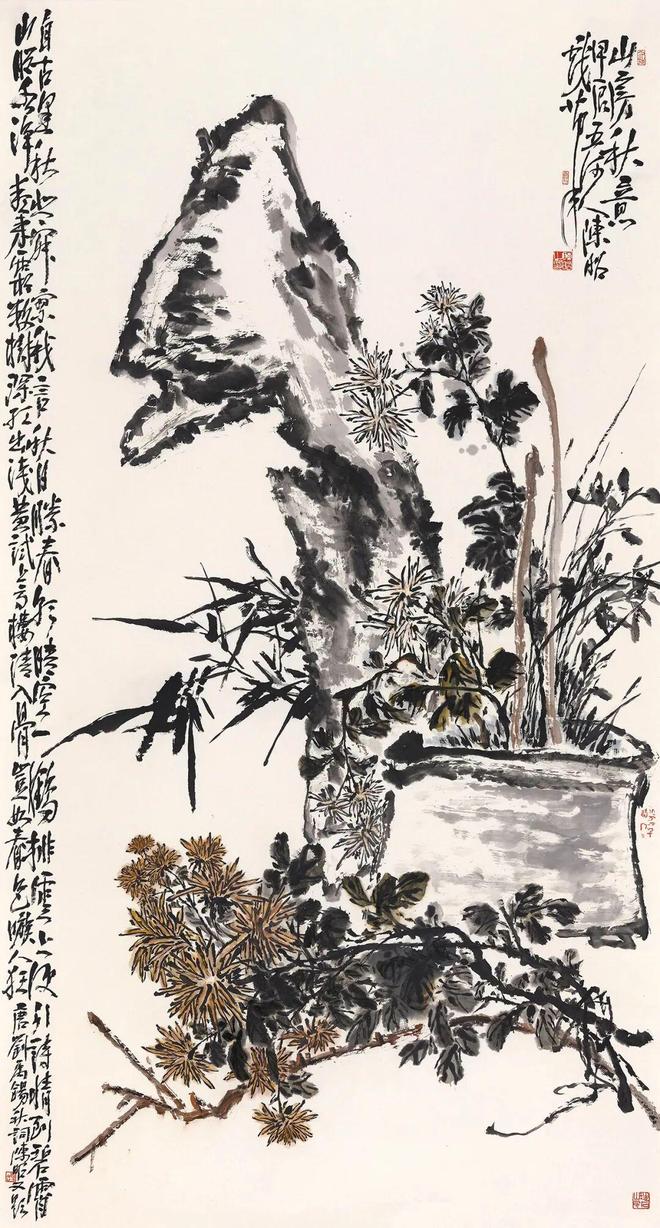 山房秋意
陳昭
自古逢秋悲寂寥我言秋日勝春朝晴空一鶴排雲上便引詩情到碧霄
山明水淨夜來霜數樹深紅出淺黃試上高樓清入骨豈如春色嗾人狂 唐劉禹錫秋詞陳昭又題